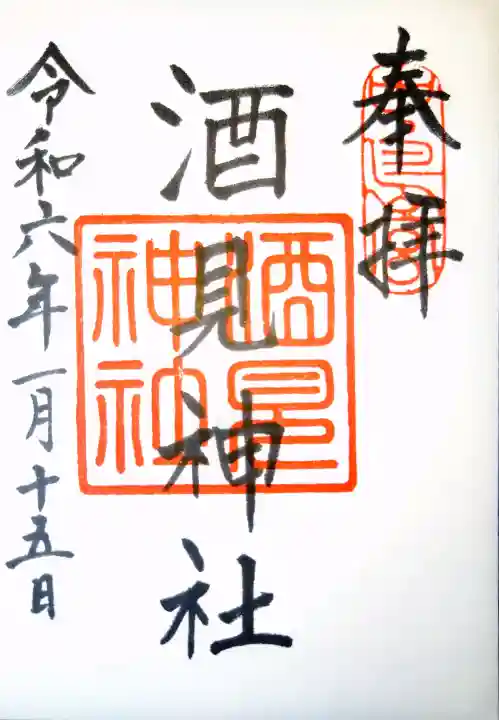 奉拝
酒見神社
酒見
神社
令和六年一月十五日